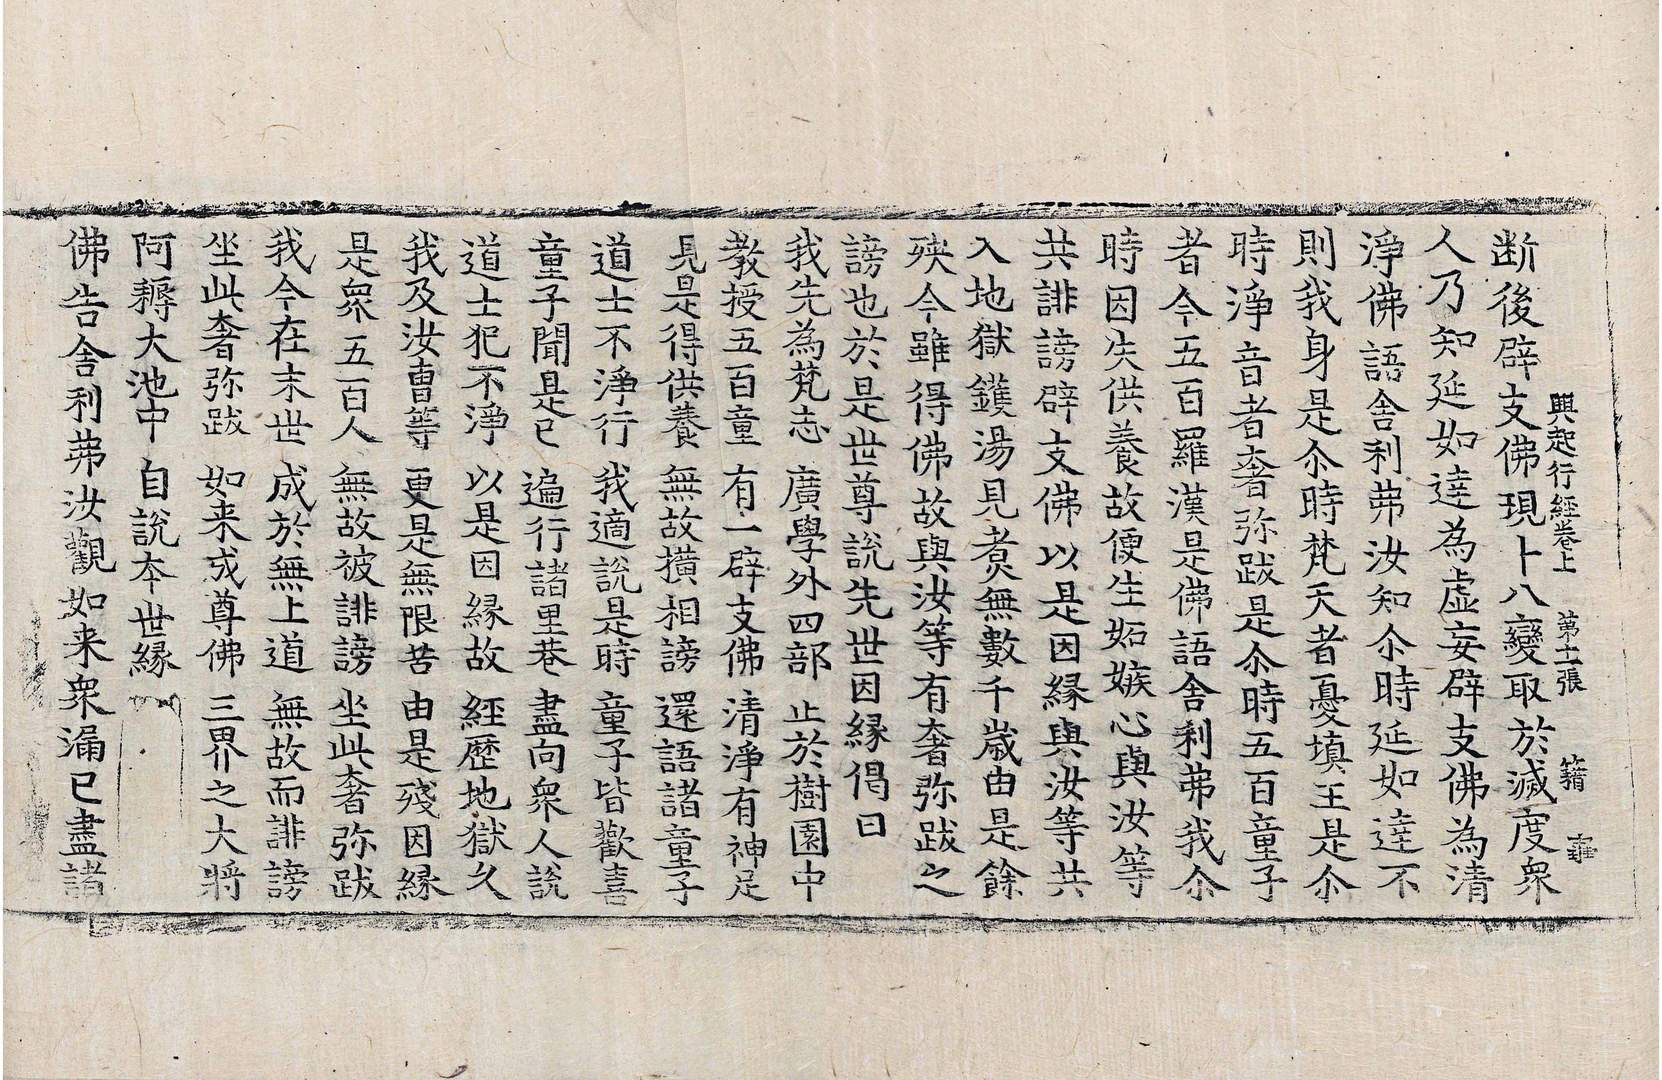 興起行經卷上 第十二張 籍
断後辟支佛現十八變取於滅度衆
人乃知延如達為虛妄辟支佛為清
淨佛語舍利弗汝知尒時延如達不
則我身是尒時梵天者憂填王是尒
時淨音者奢弥跋是尒時五百童子
者今五百羅漢是佛語舍利弗我尒
時因失供養故便生妬嫉心與汝等
共誹謗辟支佛以是因縁與汝等共
入地獄鑊湯見煑無數千歲由是餘
殃今雖得佛故與汝等有奢弥跋之
謗也於是世尊說先世因縁偈曰
我先為梵志 廣學外四部 止於樹園中
教授五百童 有一辟支佛 清淨有神足
見是得供養 無故横相謗 還語諸童子
道士不淨行 我適說是時 童子皆歡喜
童子聞是已 遍行諸里巷 盡向衆人說
道士犯不淨 以是因縁故 經歷地獄久
我及汝曺等 更是無限苦 由是殘因縁
是衆五百人 無故被誹謗 坐此奢弥跋
我今在末世 成於無上道 無故而誹謗
坐此奢弥跋 如来成尊佛 三界之大將
阿耨大池中 自說夲世縁
佛告舍利弗汝觀如来衆漏已盡諸